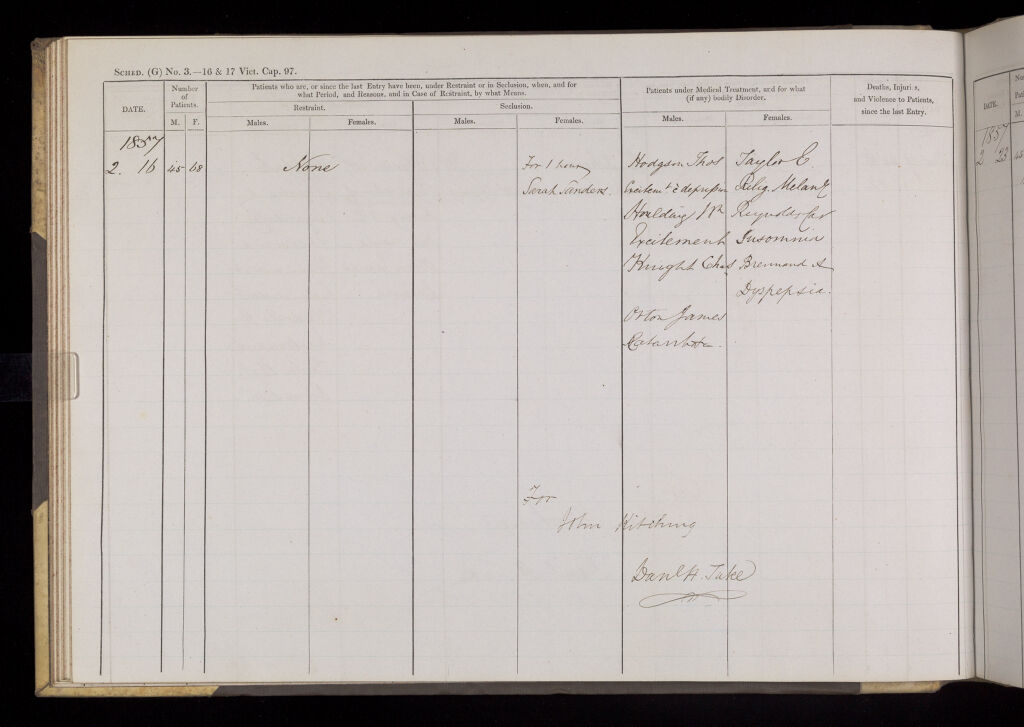 SCHED. (G) No. 3.—16 & 17 Vict. Cap. 97.
DATE.
Number of Patients.
M. F.
Patients who are, or since the last Entry have been, under Restraint or in Seclusion, when, and for
what Period, and Reasons, and in Case of Restraint, by what Means.
Restraint.
Males. Females.
Seclusion.
Males. Females.
Patients under Medical Treatment, and for what
(if any) bodily Disorder.
Males. Females.
Deaths, Injuries,
and Violence to Patients,
since the last Entry.
1857
2. 16 45 68 None For 1 hour Hodgson Thos Taylor E.
Sarah Sanders. Excitemt & depression Relig. Melan
Houlding Wm Reynolds Car
Excitement Insomnia
Knight Chas Brennand A
Dyspepsia.
Orton James
For
John Kitching
Danl H. Tuke
DATE.
1857
2 23 45
M.